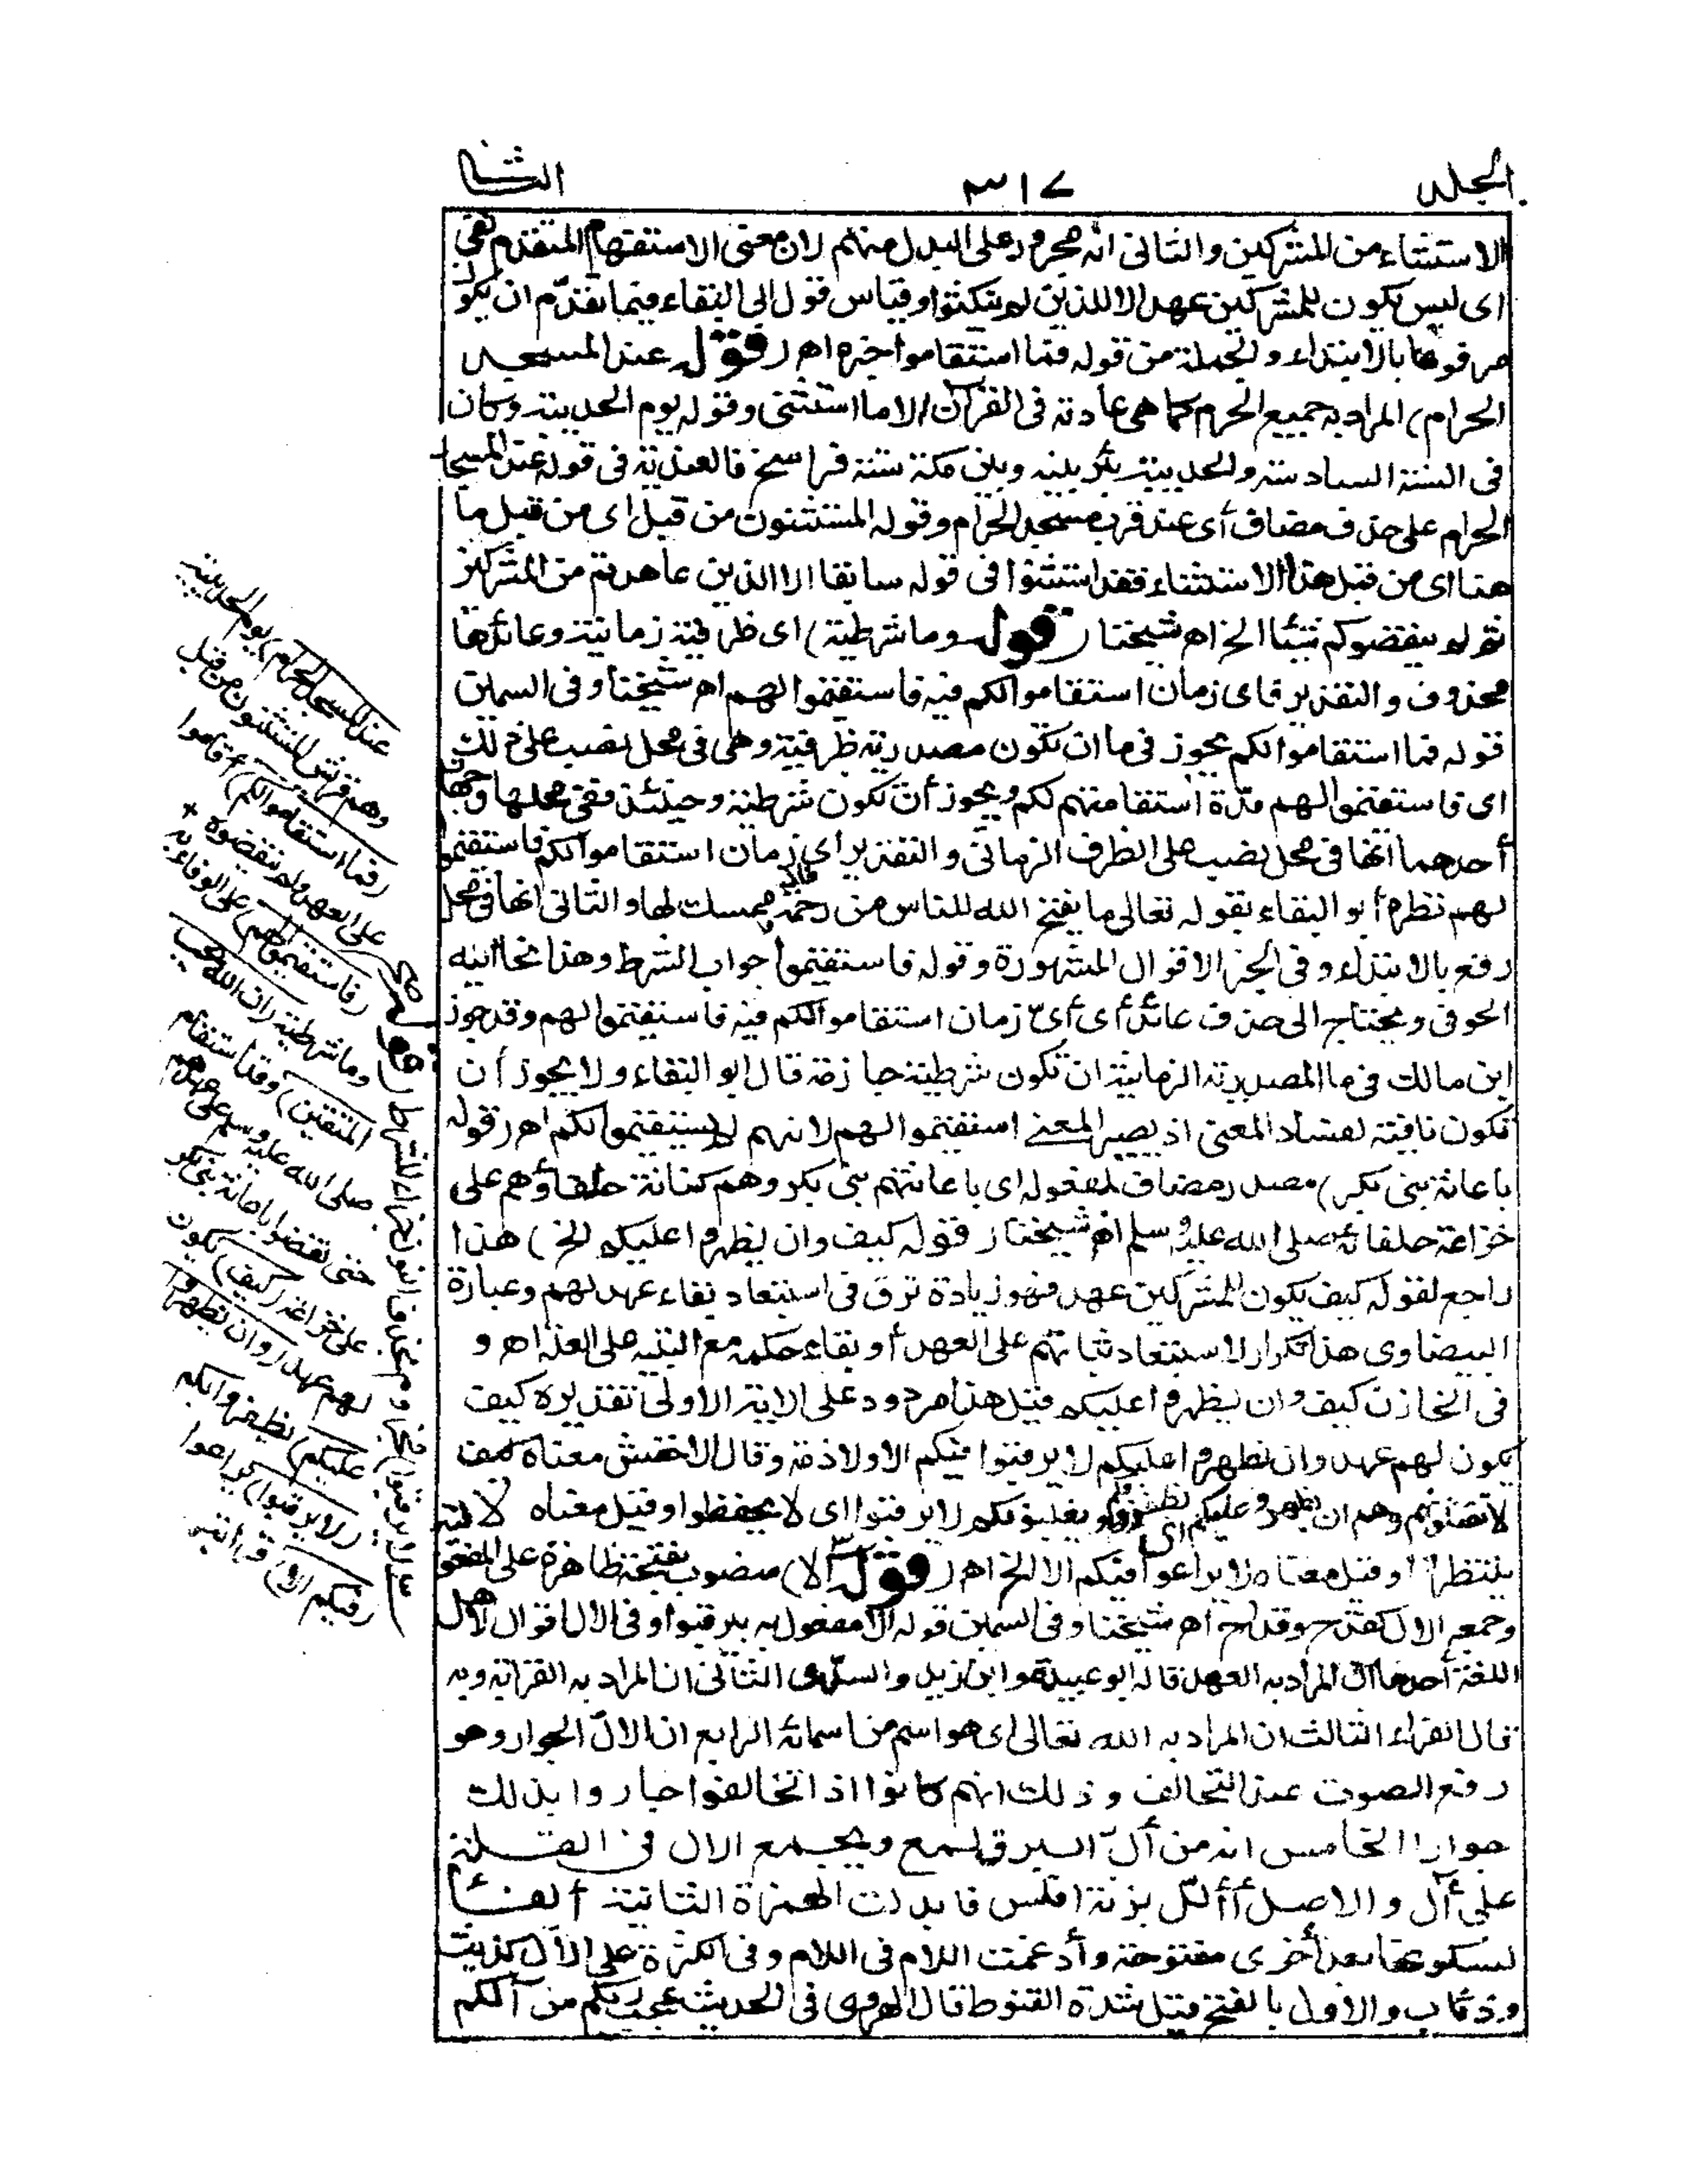 المجلد ٣١٧ الثا
الاستثناء من المشركين والثانى انه مجرور على البدل منهم لان معنى الاستفهام المتقدم نفى
اى ليس يكون للمشركين عهد الا للذين لم ينكثوا وقياس قول ابى البقاء فيما تقدم ان يكون
مرفوعا بالابتداء والجملة من قوله فما استقاموا خبره اه (قوله عند المسجد
الحرام) المراد به جميع الحرم كما هى عادته فى القرآن الا ما استثنى وقوله يوم الحديبية وكان
فى السنة السادسة والحديبية بئر بينه وبين مكة ستة فراسخ فالعندية فى قوله عند المسجد
الحرام على حذف مضاف أى عند قرب المسجد الحرام وقوله المستثنون من قبل اى من قبل ما
هنا اى من قبل هذا الاستثناء فقد استثنوا فى قوله سابقا الا الذين عاهدتم من المشركين
ثم لم ينقضوكم شيئا الخ اه شيخنا (قوله وما شرطية) اى ظرفية زمانية وعائدها
محذوف والتقدير فاى زمان استقاموا لكم فيه فاستقيموا لهم اه شيخنا وفى السمين
قوله فما استقاموا لكم يجوز فى ما ان تكون مصدرية ظرفية وهى فى محل نصب على ذلك
اى فاستقيموا لهم مدة استقامتهم لكم ويجوز أن تكون شرطية وحينئذ ففى محلها وجهان
أحدهما انها فى محل نصب على الظرف الزمانى والتقدير اى زمان استقاموا لكم فاستقيموا
لهم نظره أبو البقاء بقوله تعالى ما يفتح الله للناس من رحمة فلا ممسك لها والثانى انها فى محل
رفع بالابتداء وفى الخبر الاقوال المشهورة وقوله فاستقيموا جواب الشرط وهذا نحا اليه
الحوفى ويحتاج الى حذف عائد أى أىّ زمان استقاموا لكم فيه فاستقيموا لهم وقد جوز
ابن مالك فى ما المصدرية الزمانية ان تكون شرطية جازمة قال ابو البقاء ولا يجوز أن
تكون نافية لفساد المعنى اذ يصير المعنى استقيموا لهم لانهم لم يستقيموا لكم اه (قوله
باعانة بنى بكر) مصدر مضاف لمفعوله اى باعانتهم بنى بكر وهم كنانة حلفاؤهم على
خزاعة حلفائه صلى الله عليه وسلم اه شيخنا (قوله كيف وان يظهروا عليكم الخ) هذا
راجع لقوله كيف يكون للمشركين عهد فهو زيادة ترق فى استبعاد بقاء عهد لهم وعبارة
البيضاوى هذا تكرار لاستبعاد ثباتهم على العهد أو بقاء حكمه مع التنبيه على العلة اه و
فى الخازن كيف وان يظهروا عليكم قيل هذا مردود على الاية الاولى تقديره كيف
يكون لهم عهد وان يظهروا عليكم لا يرقبوا فيكم الا ولا ذمة وقال الاخفش معناه كيف
لا تقتلونهم وهم ان يظهروا عليكم اى يظفروا بكم ويغلبوكم لا يرقبوا اى لا يحفظوا وقيل معناه لا
ينتظروا وقيل معناه لا يراعوا فيكم الا الخ اه (قوله الا) منصوب بفتحة ظاهرة على المفعول
وجمعه الال كقدح وقداح اه شيخنا وفى السمين قوله الا مفعول به بيرقبوا وفى الال اقوال لاهل
اللغة أحدها ان المراد به العهد قاله ابو عبيدة وابن زيد والسدى الثانى ان المراد به القرابة وبه
قال الفراء الثالث ان المراد به الله تعالى اى هو اسم من اسمائه الرابع ان الال الجوار وهو
رفع الصوت عند التحالف وذلك انهم كانوا اذا تحالفوا جاروا بذلك
جوارا الخامس انه من ألّ البرق لمع ويجمع الال فى القلة
على آل والاصل أألل بزنة افلس فابدلت الهمزة الثانية ألفا
لسكونها بعد أخرى مفتوحة وأدغمت اللام فى اللام وفى الكثرة على الال كذئب
وذئاب والاول بالفتح قيل شدة القنوط قال الهروى فى الحديث عجب ربكم من ألكم
عند المسجد الحرام) يوم الحديبية
وهم قريش المستثنون من قبل
(فما استقاموا لكم) أقاموا
على العهد ولم ينقضوه
(فاستقيموا لهم) على الوفاء به
وما شرطية (ان الله يحب
المتقين) وقد استقام
صلى الله عليه وسلم على عهدهم
حتى نقضوا باعانة بنى بكر
على خزاعة (كيف) يكون
لهم عهد (وان يظهروا
عليكم) يظفروا بكم
(لا يرقبوا) يراعوا
(فيكم الا) قرابة